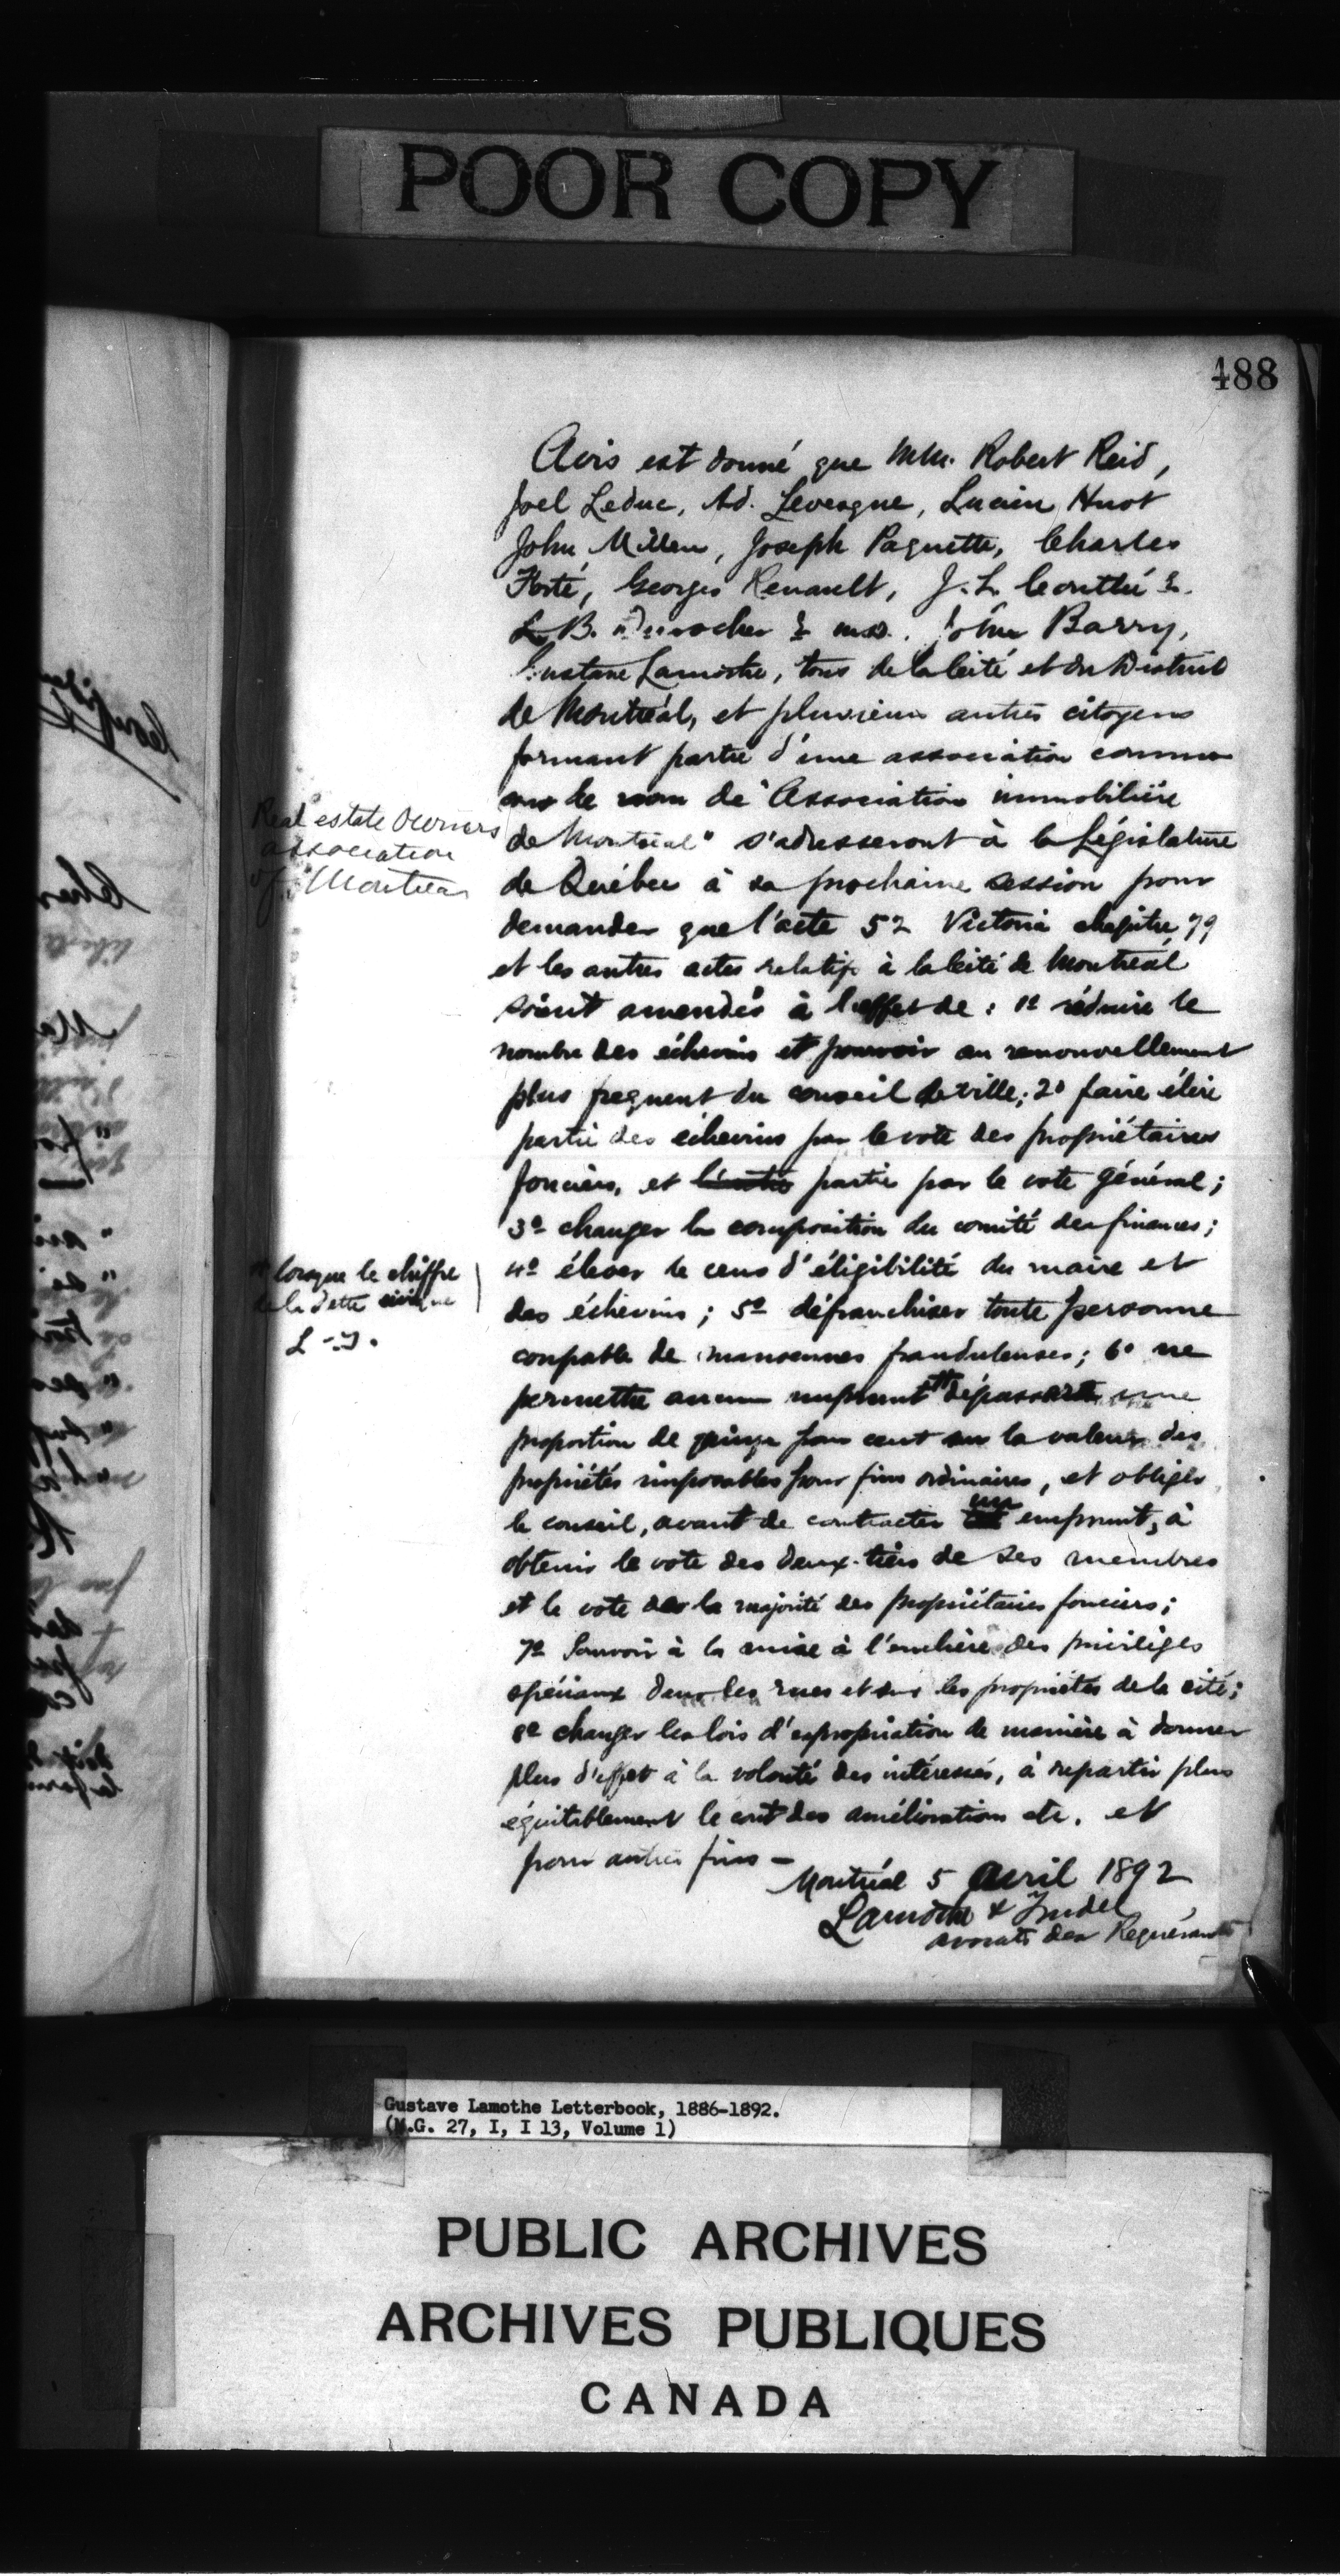 POOR COPY
488
Avis est donné que MM. Robert Reid,
Joel Leduc, Ad. Levesque, Lucien Huot
John Millen, Joseph Paquette, Charles
Georges Renault, J. L.
L. B. Durocher John Barry,
Gustave Lamothe, tous de la Cité et du District
de Montréal, et plusieurs autres citoyens
formant partie d'une association connue
sous le nom de "Association immobilière
Real estate Owners
association
of Montreal
de Montreal" s'adresseront à la Législature
de Québec à sa prochaine session pour
demander que l'acte 52 Victoria chapitre 79
et les autres actes relatifs à la Cité de Montréal
soient amendés à l'effet de : 1º réduire le
nombre des échevins et pourvoir au renouvellement
plus frequent du conseil de ville; 2º faire élire
partie des échevins par le vote des propriétaires
fonciers, et partie par le vote général;
3º changer la composition du comité des finances;
4º élever le cens d'éligibilité du maire et
des échevins; 5º défranchiser toute personne
lorsque le chiffre
de la dette civique
coupable de manoeuvres frauduleuses; 6º ne
permettre aucun emprunt dépassant une
proportion de quinze pour cent sur la valeur des
propriétés imposables pour fins ordinaires, et obliger
le conseil, avant de contracter un emprunt, à
obtenir le vote des deux-tiers de ses membres
et le vote de la majorité des propriétaires fonciers;
7º Pourvoir à la mise à l'enchère des privilèges
spéciaux dans les rues et sur les propriétés de la cité;
8º changer les lois d'expropriation de manière à donner
plus d'effet à la volonté des intéressés, à repartir plus
équitablement le cout des améliorations etc. et
pour autres fins —
Montréal 5 avril 1892
Lamothe & Trudel
avocats des Requérants
Gustave Lamothe Letterbook, 1886-1892.
(M.G. 27, I, I 13, Volume 1)
PUBLIC ARCHIVES
ARCHIVES PUBLIQUES
CANADA